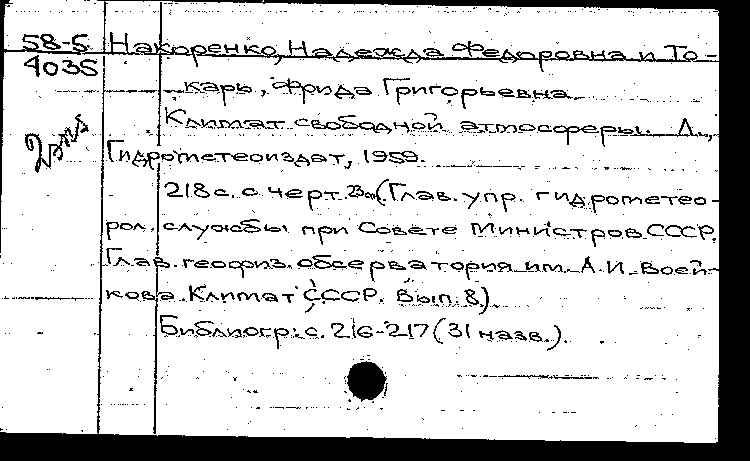 58-5
4035
2 экз
Накоренко, Надежда Федоровна и То-
карь, Фрида Григорьевна
Климат свободной атмосферы. Л.,
Гидрометеоиздат, 1959.
218 с. с черт. 23 см (Глав. упр. гидрометео-
рол. службы при Совете Министров СССР.
Глав. геофиз. обсерватория им. А. И. Воей-
кова. Климат СССР. Вып. 8).
Библиогр: с. 216-217 (31 назв.).